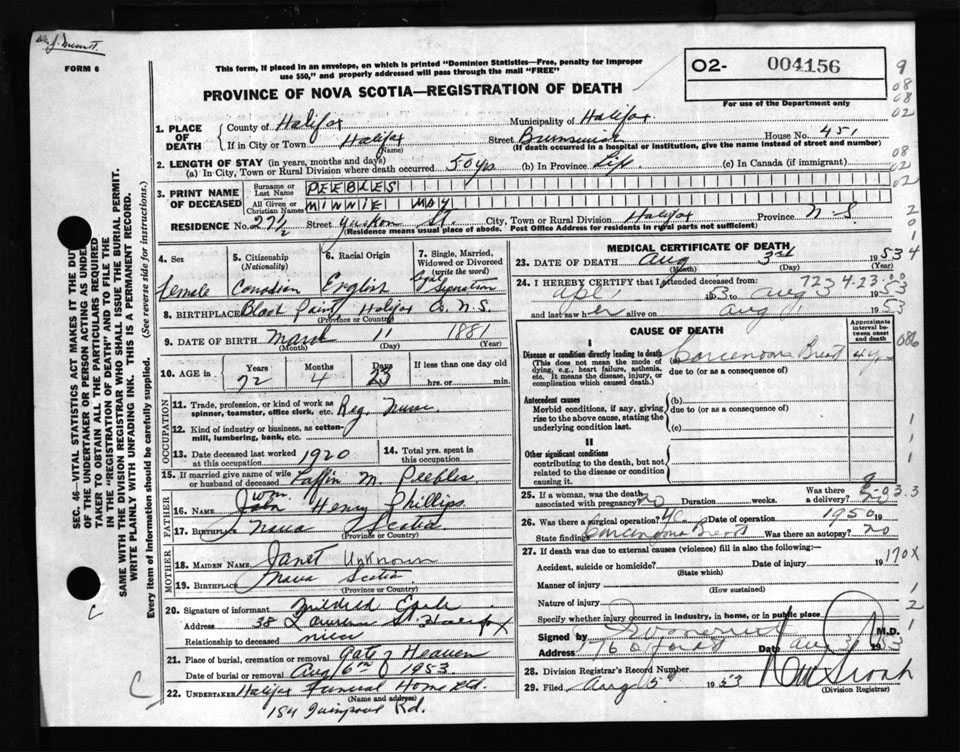 FORM 6
This form, if placed in an envelope, on which is printed "Dominion Statistics—Free, penalty for improper
use $50," and properly addressed will pass through the mail "FREE"
PROVINCE OF NOVA SCOTIA—REGISTRATION OF DEATH
O2- 004156
For use of the Department only
9
08
08
02
08
02
2
0
1
SEC. 46—VITAL STATISTICS ACT MAKES IT THE DUTY
OF THE UNDERTAKER OR PERSON ACTING AS UNDER-
TAKER TO OBTAIN ALL THE PARTICULARS REQUIRED
IN THE "REGISTRATION OF DEATH" AND TO FILE THE
SAME WITH THE DIVISION REGISTRAR WHO SHALL ISSUE THE BURIAL PERMIT.
WRITE PLAINLY WITH UNFADING INK. THIS IS A PERMANENT RECORD.
Every item of information should be carefully supplied. (See reverse side for instructions.)
1. PLACE OF DEATH
County of Halifax Municipality of Halifax
If in City or Town Halifax Street Brunswick House No. 451
(Name) (If death occurred in a hospital or institution, give the name instead of street and number)
2. LENGTH OF STAY (in years, months and days)
(a) In City, Town or Rural Division where death occurred 50 yrs (b) In Province Life (c) In Canada (if immigrant)
3. PRINT NAME OF DECEASED
Surname or Last Name PEEBLES
All Given or Christian Names MINNIE MAY
RESIDENCE No. 27 1/2 Street Yukon St. City, Town or Rural Division Halifax Province N-S.
(Residence means usual place of abode. Post Office Address for residents in rural parts not sufficient)
4. Sex
Female
5. Citizenship
(Nationality)
Canadian
6. Racial Origin
English
7. Single, Married,
Widowed or Divorced
(write the word)
Legal Separation
8. BIRTHPLACE Point, Halifax Co. N.S.
(Province or Country)
9. DATE OF BIRTH March 11 1881
(Month) (Day) (Year)
10. AGE in
Years Months Days If less than one day old
72 4 23 hrs. or min.
OCCUPATION
11. Trade, profession, or kind of work as
spinner, teamster, office clerk, etc. Reg. Nurse
12. Kind of industry or business, as cotton-
mill, lumbering, bank, etc.
13. Date deceased last worked
at this occupation 1920
14. Total yrs. spent in
this occupation
15. If married give name of wife
or husband of deceased M. Peebles
FATHER
16. Name Wm. Henry Phillips
17. Birthplace Nova Scotia
(Province or Country)
MOTHER
18. MAIDEN NAME Janet Unknown
19. BIRTHPLACE Nova Scotia
(Province or Country)
20. Signature of informant Mildred
Address 38 St. Halifax
Relationship to deceased niece
21. Place of burial, cremation or removal Gate of Heaven
Date of burial or removal Aug 6th 1953
22. UNDERTAKER Halifax Funeral Home Ltd.
(Name and address)
154 Quinpool Rd.
C
C
MEDICAL CERTIFICATE OF DEATH
23. DATE OF DEATH Aug 3rd 1953 4
(Month) (Day) (Year)
24. I HEREBY CERTIFY that I attended deceased from:
723 4-23
53 to aug 3 1953
and last saw her alive on aug 1953
CAUSE OF DEATH
Approximate interval between onset and death
086
I
Disease or condition directly leading to death
(This does not mean the mode of
dying, e.g., heart failure, asthenia,
etc. It means the disease, injury, or
complication which caused death.)
(a) Carcenoma Breast 4 yrs
due to (or as a consequence of)
Antecedent causes
Morbid conditions, if any, giving
rise to the above cause, stating the
underlying condition last.
(b)
due to (or as a consequence of)
(c)
1
II
1
Other significant conditions
contributing to the death, but not
related to the disease or condition
causing it.
1
25. If a woman, was the death
associated with pregnancy? no Duration weeks. Was there a delivery? no
26. Was there a surgical operation? Date of operation 1950 19
State findings Carcenoma Breast Was there an autopsy? no
27. If death was due to external causes (violence) fill in also the following:—
Accident, suicide or homicide? Date of injury 19 170X
(State which)
Manner of injury
(How sustained)
1
Nature of injury
2
Specify whether injury occurred in industry, in home, or in public place
Signed by M.D.
Address 76 Oxford Date aug 3 1953
28. Division Registrar's Record Number
29. Filed Aug 5 1953
(Division Registrar)